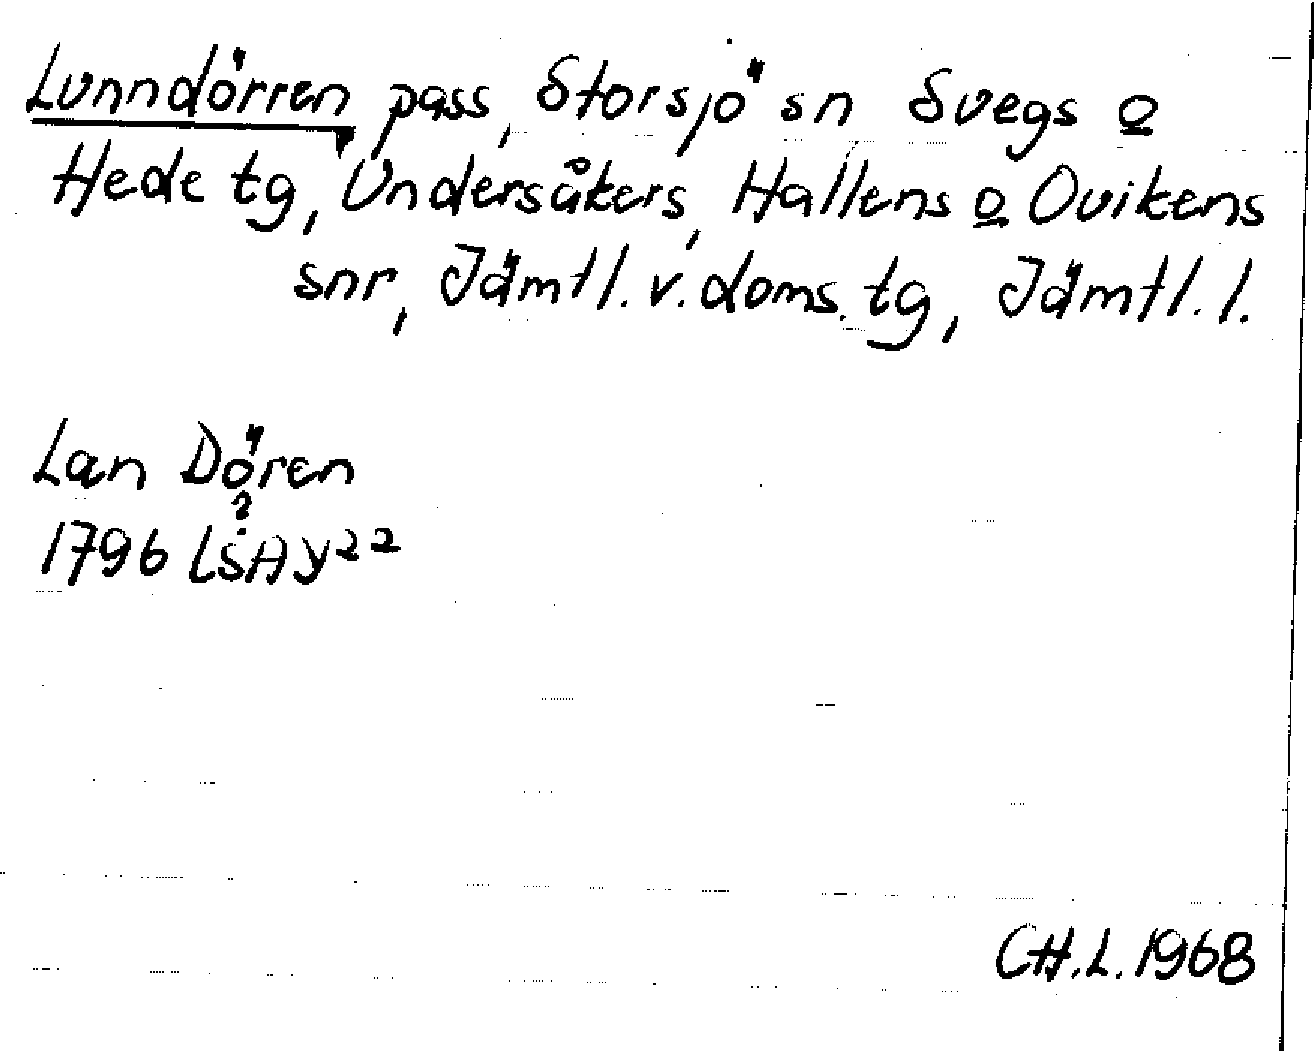 Lunndörren pass, Storsjö sn Svegs o
Hede tg, Undersåkers, Hallens o Ovikens
snr, Jämtl. v. doms. tg, Jämtl. l.
Lan Dören
?
1796 LSA Y22
CH.L. 1968